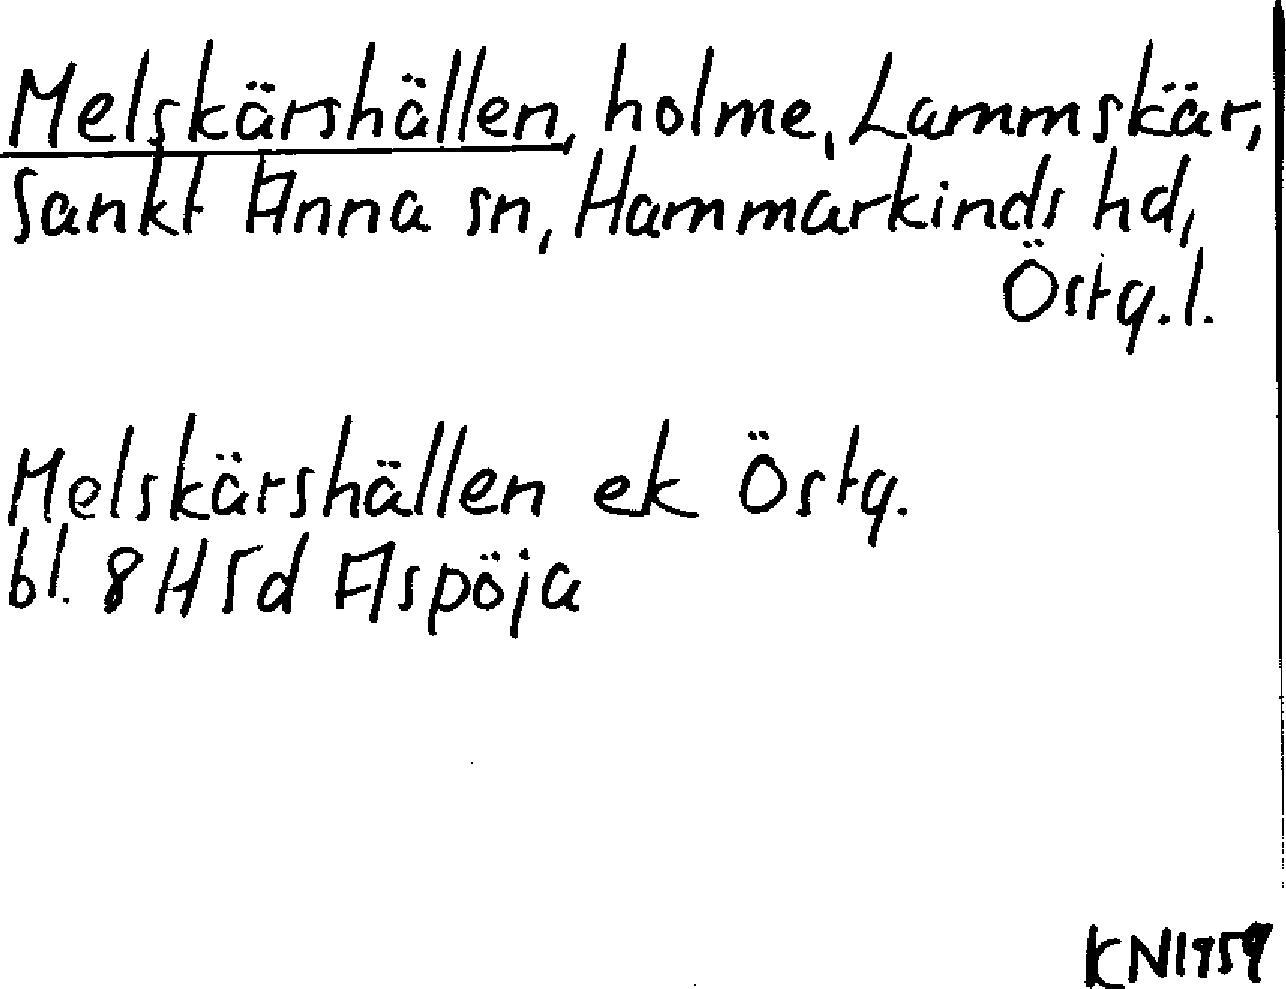 Melskärshällen, holme, Lammskär,
Sankt Anna sn, Hammarkinds hd,
Östg.l.
Melskärshällen ek Östg.
bl. 8H5d Aspöja
KN1959